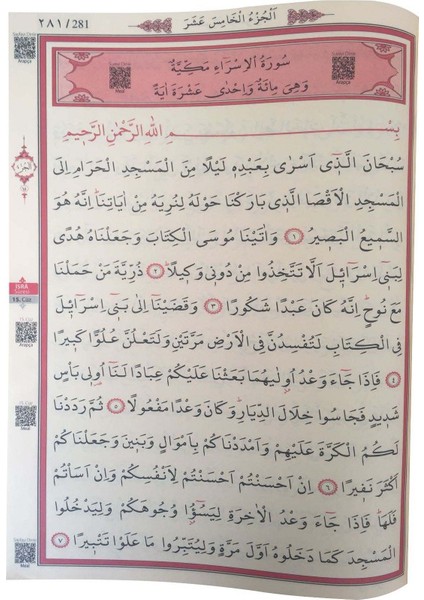 ٢٨١/281
اَلْجُزْءُ الْخَامِسَ عَشَرَ
سُورَةُ الْاِسْرَاءِ مَكِّيَّةٌ
وَهِيَ مِائَةٌ وَاِحْدٰى عَشْرَةَ اٰيَةً
بِسْمِ اللّٰهِ الرَّحْمٰنِ الرَّحِيمِ
سُبْحَانَ الَّذٖٓي اَسْرٰى بِعَبْدِهٖ لَيْلًا مِنَ الْمَسْجِدِ الْحَرَامِ اِلَى
الْمَسْجِدِ الْاَقْصَا الَّذٖي بَارَكْنَا حَوْلَهُ لِنُرِيَهُ مِنْ اٰيَاتِنَاۜ اِنَّهُ هُوَ
السَّمٖيعُ الْبَصٖيرُ ١ وَاٰتَيْنَا مُوسَى الْكِتَابَ وَجَعَلْنَاهُ هُدًى
لِبَنٖٓي اِسْرَٓائٖلَ اَلَّا تَتَّخِذُوا مِنْ دُونٖي وَكٖيلًاۜ ٢ ذُرِّيَّةَ مَنْ حَمَلْنَا
مَعَ نُوحٍۜ اِنَّهُ كَانَ عَبْدًا شَكُورًا ٣ وَقَضَيْنَٓا اِلٰى بَنٖٓي اِسْرَٓائٖلَ
فِي الْكِتَابِ لَتُفْسِدُنَّ فِي الْاَرْضِ مَرَّتَيْنِ وَلَتَعْلُنَّ عُلُوًّا كَبٖيرًا
٤ فَاِذَا جَٓاءَ وَعْدُ اُو۫لٰيهُمَا بَعَثْنَا عَلَيْكُمْ عِبَادًا لَنَٓا اُو۬لٖي بَأْسٍ
شَدٖيدٍ فَجَاسُوا خِلَالَ الدِّيَارِۜ وَكَانَ وَعْدًا مَفْعُولًا ٥ ثُمَّ رَدَدْنَا
لَكُمُ الْكَرَّةَ عَلَيْهِمْ وَاَمْدَدْنَاكُمْ بِاَمْوَالٍ وَبَنٖينَ وَجَعَلْنَاكُمْ
اَكْثَرَ نَفٖيرًا ٦ اِنْ اَحْسَنْتُمْ اَحْسَنْتُمْ لِاَنْفُسِكُمْ وَاِنْ اَسَأْتُمْ
فَلَهَاۜ فَاِذَا جَٓاءَ وَعْدُ الْاٰخِرَةِ لِيَسُٓوؤُ۫ا وُجُوهَكُمْ وَلِيَدْخُلُوا
الْمَسْجِدَ كَمَا دَخَلُوهُ اَوَّلَ مَرَّةٍ وَلِيُتَبِّرُوا مَا عَلَوْا تَتْبٖيرًا ٧
ISRA
15. Cüz